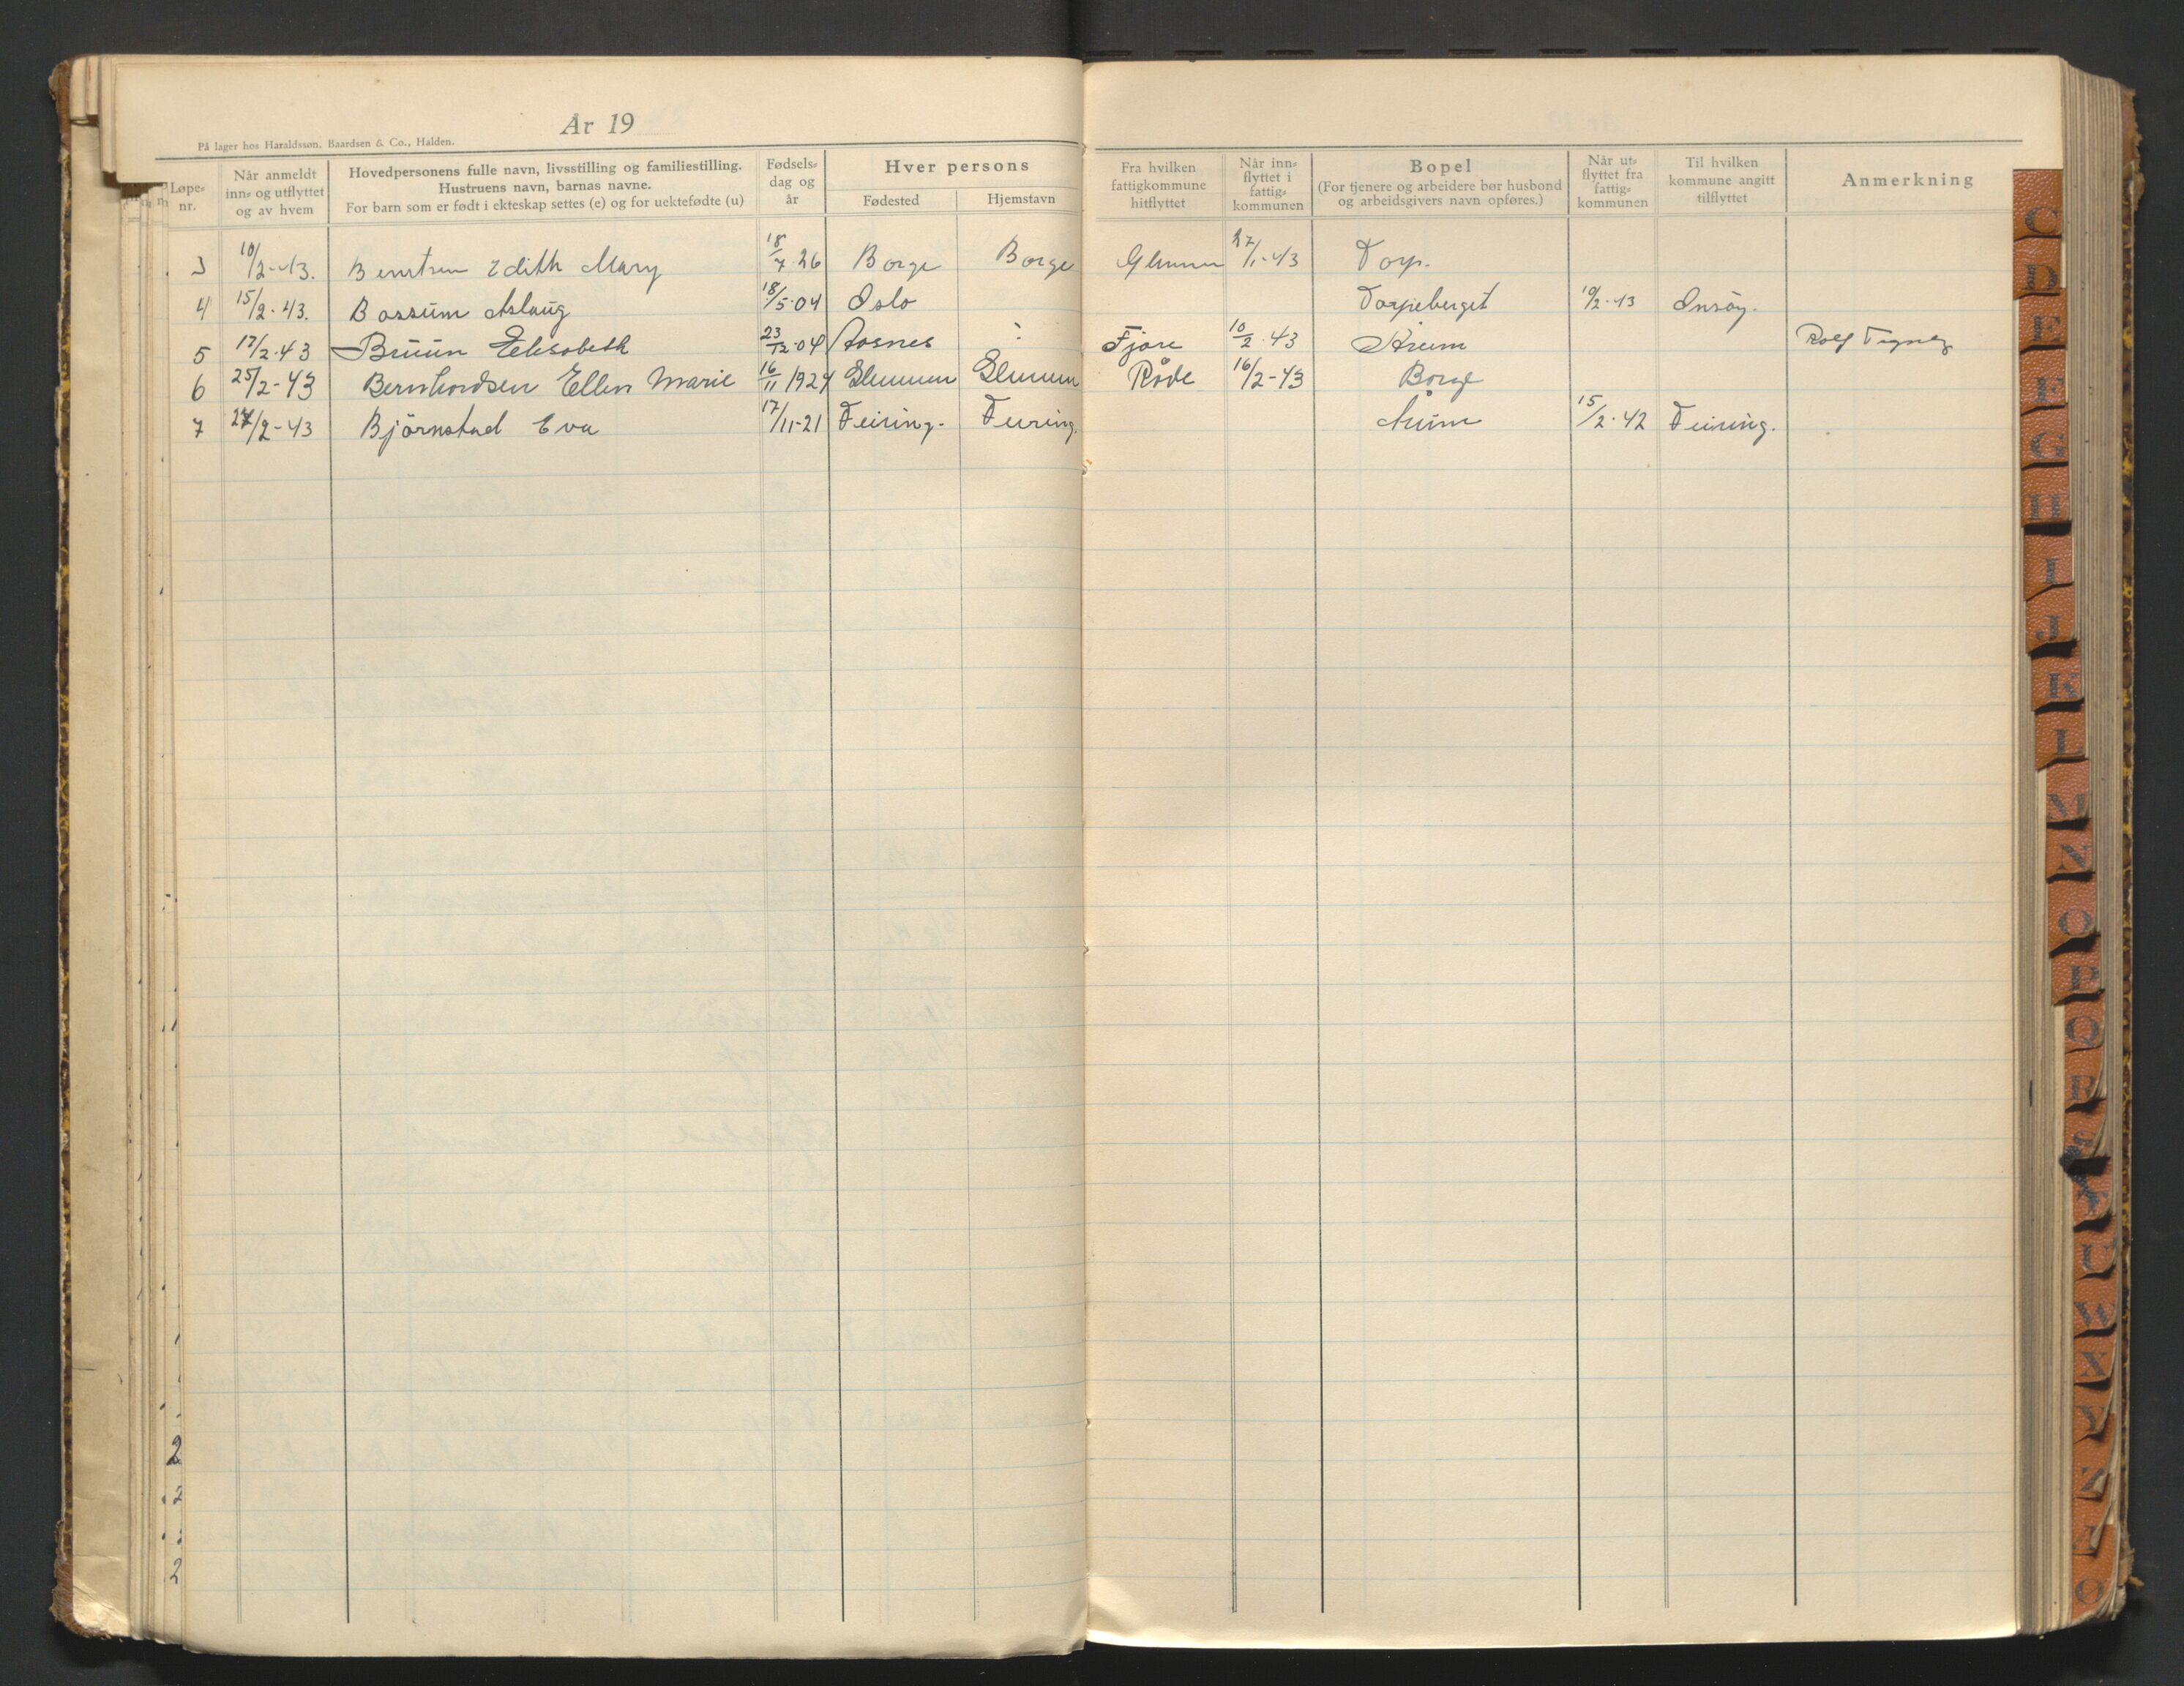 År 19
På lager hos Haraldssøn, Baardsen & Co., Halden.
Løpe-nr. Når anmeldt inn- og utflyttet og av hvem Hovedpersonens fulle navn, livsstilling og familiestilling. Hustruens navn, barnas navne. For barn som er født i ekteskap settes (e) og for uektefødte (u) Fødsels-dag og år Hver persons Fødested Hjemstavn Fra hvilken fattigkommune hitflyttet Når inn-flyttet i fattig-kommunen Bopel (For tjenere og arbeidere bør husbond og arbeidsgivers navn opføres.) Når ut-flyttet fra fattig-kommunen Til hvilken kommune angitt tilflyttet Anmerkning
3 10/2-43. Edith Mary 18/7-26 Borge Borge Glemmen 27/1-43 Torp.
4 15/2-43. Bossum Aslaug 18/5-04 Oslo Torpeberget 10/2-43 Onsøy.
5 17/2-43 Bruun Elisabeth 23/12-04 Åsnes Fjære 10/2-43 Årum Rolf
6 25/2-43 Bernhardsen Ellen Marie 16/11 1924 Glemmen Glemmen Råde 16/2-43 Borge
7 27/2-43 Bjørnstad Eva 17/11-21 Feiring. Feiring. Årum 15/2-42 Feiring.
2
2
2
C
D
E
F
G
H
I
J
K
L
M
N
O
P
Q
R
S
T
U
W
X
Y
Z
Æ
Ø